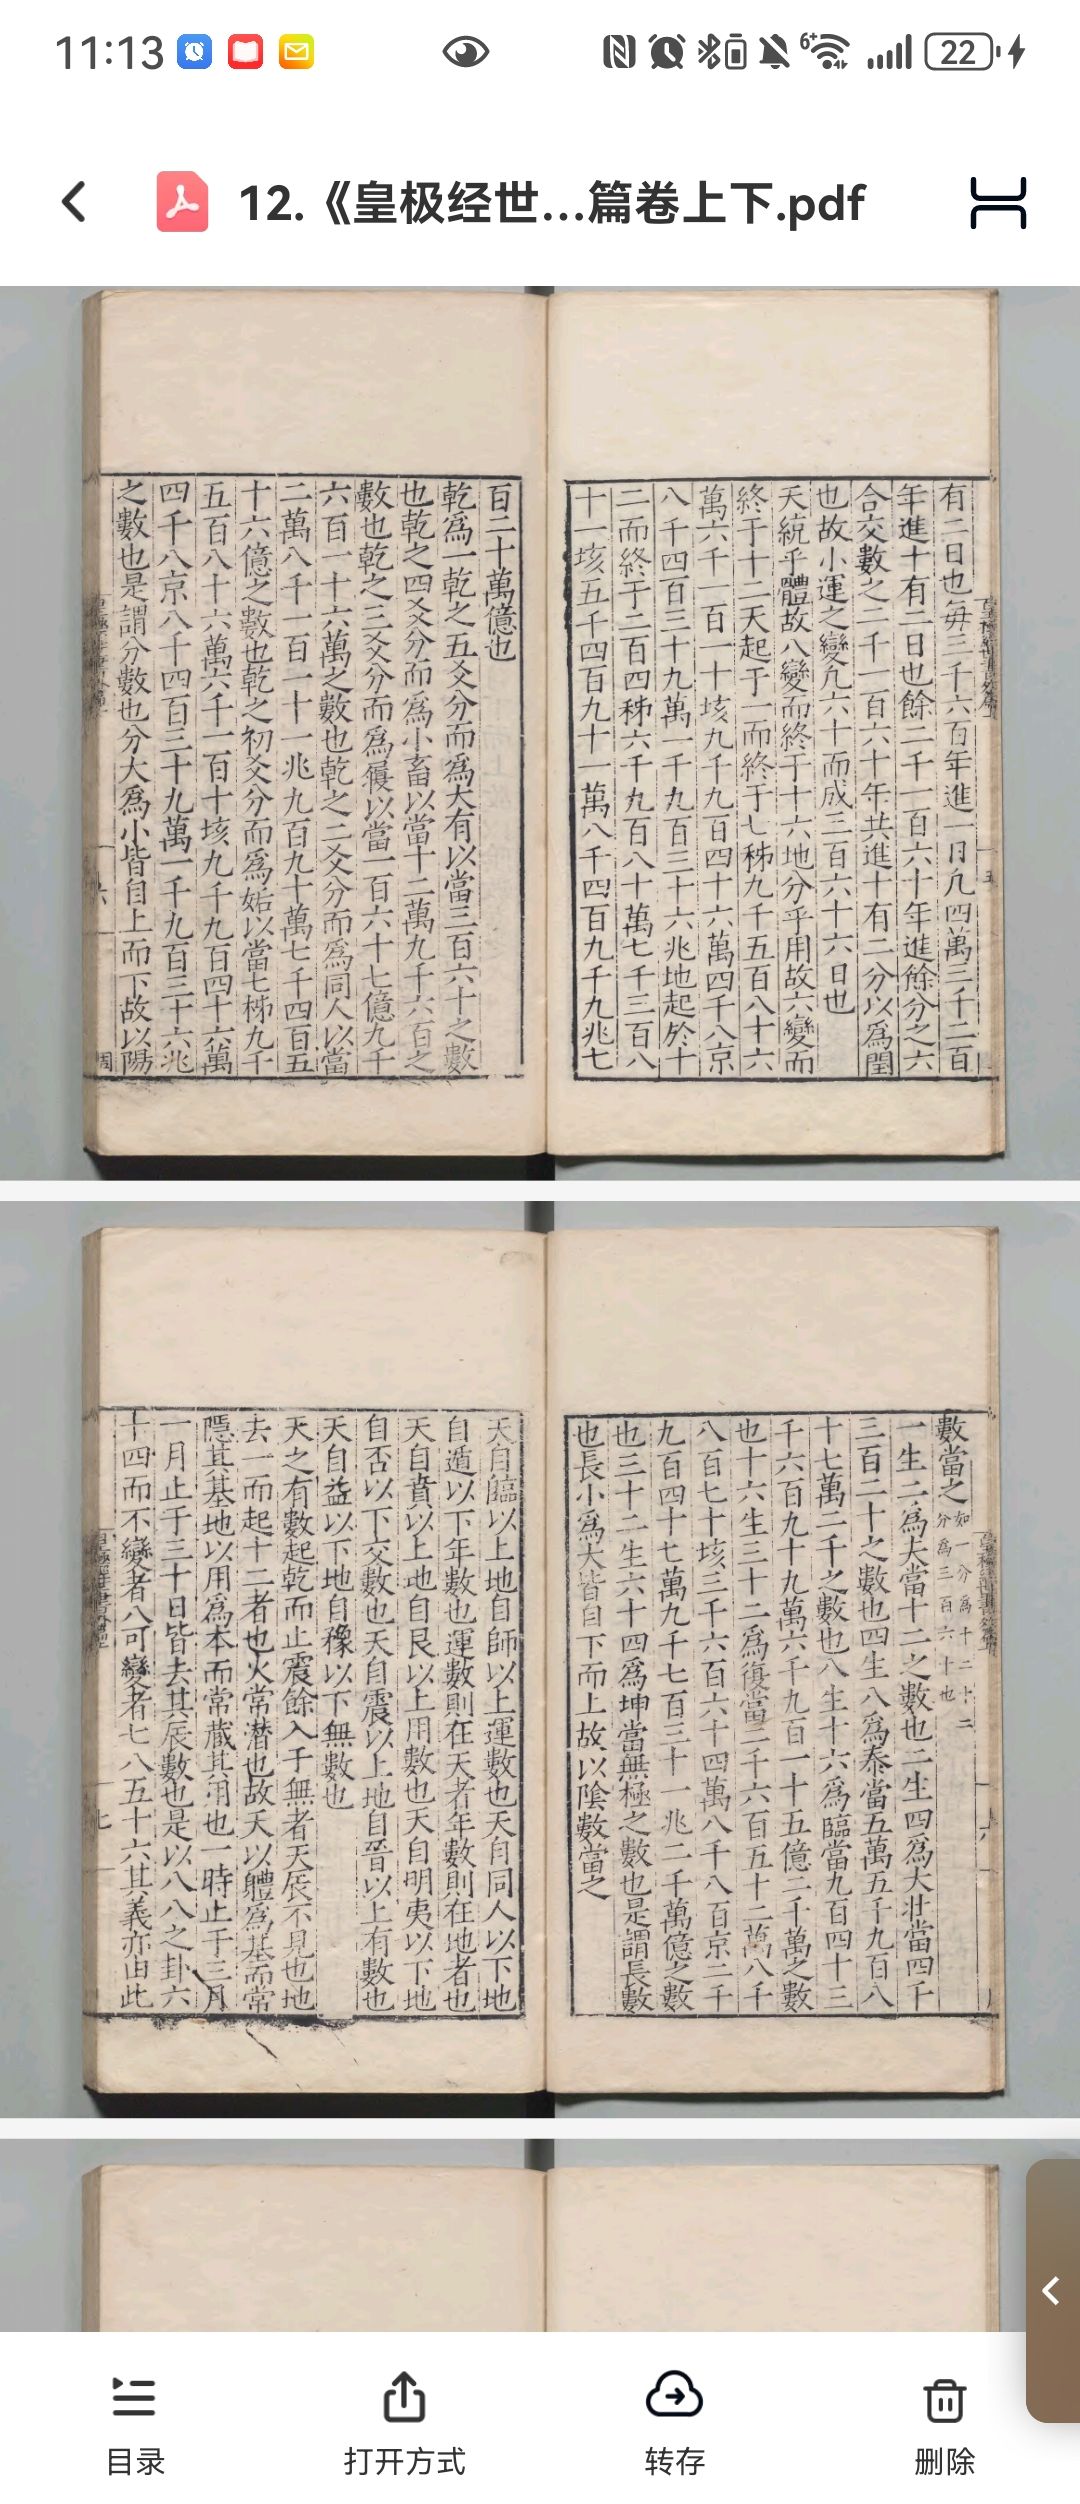 11:13
6+
22
12.《皇极经世...篇卷上下.pdf
有二日也每三千六百年進一日凡四萬三千二百
年進十有二日也餘二千一百六十年進餘分之六
合交數之二千一百六十年共進十有二分以爲閏
也故小運之變凡六十而成三百六十六日也
天統乎體故八變而終于十六地分乎用故六變而
終于十二天起于一而終于七秭九千五百八十六
萬六千一百一十垓九千九百四十六萬四千八京
八千四百三十九萬一千九百三十六兆地起於十
二而終于二百四秭六千九百八十萬七千三百八
十一垓五千四百九十一萬八千四百九千九兆七
百二十萬億也
乾爲一乾之五爻分而爲大有以當三百六十之數
也乾之四爻分而爲小畜以當十二萬九千六百之
數也乾之三爻分而爲履以當一百六十七億九千
六百一十六萬之數也乾之二爻分而爲同人以當
二萬八千一百一十一兆九百九十萬七千四百五
十六億之數也乾之初爻分而爲姤以當七秭九千
五百八十六萬六千一百十垓九千九百四十六萬
四千八京八千四百三十九萬一千九百三十六兆
之數也是謂分數也分大爲小皆自上而下故以陽
六
數當之如一分爲十二十二
分爲三百六十也
一生二爲夬當十二之數也二生四爲大壯當四千
三百二十之數也四生八爲泰當五萬五千九百八
十七萬二千之數也八生十六爲臨當九百四十三
千六百九十九萬六千九百一十五億二千萬之數
也十六生三十二爲復當二千六百五十二萬八千
八百七十垓三千六百六十四萬八千八百京二千
九百四十七萬九千七百三十一兆二千萬億之數
也三十二生六十四爲坤當無極之數也是謂長數
也長小爲大皆自下而上故以陰數當之
天自臨以上地自師以上運數也天自同人以下地
自遁以下年數也運數則在天者年數則在地者也
天自賁以上地自艮以上用數也天自明夷以下地
自否以下交數也天自震以上地自晉以上有數也
天自益以下地自豫以下無數也
天之有數起乾而止震餘入于無者天辰不見也地
去一而起十二者也火常潛也故天以體爲基而常
隱其基地以用爲本而常藏其用也一時止于三月
一月止于三十日皆去其辰數也是以八八之卦六
十四而不變者八可變者七八五十六其義亦由此
七
目录
打开方式
转存
删除